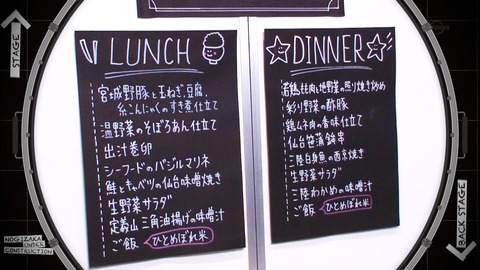 STAGE
LUNCH
宮城野豚と玉ねぎ、豆腐
糸こんにゃくのすき煮仕立て
温野菜のそぼろあん仕立て
出汁巻卵
シーフードのバジルマリネ
鮭とキャベツの仙台味噌焼き
生野菜サラダ
定義山 三角油揚げの味噌汁
ご飯 ひとめぼれ米
DINNER
若鶏もも肉と地野菜の照り焼き炒め
彩り野菜の酢豚
鶏ムネ肉の香味仕立て
仙台笹蒲鉾串
三陸白身魚の西京焼き
生野菜サラダ
三陸わかめの味噌汁
ご飯 ひとめぼれ米
BACK STAGE
NOGIZAKA
UNDER
CONSTRUCTION